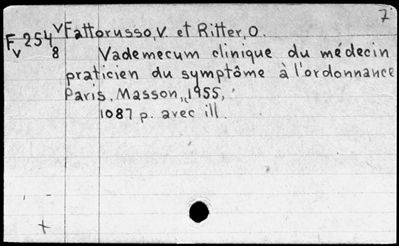 7
F 254 V Fattorusso, V. et Ritter, O.
V 8 Vademecum clinique du médecin
praticien du symptôme à l'ordonnance
Paris, Masson, 1955,
1087 p. avec ill.
+